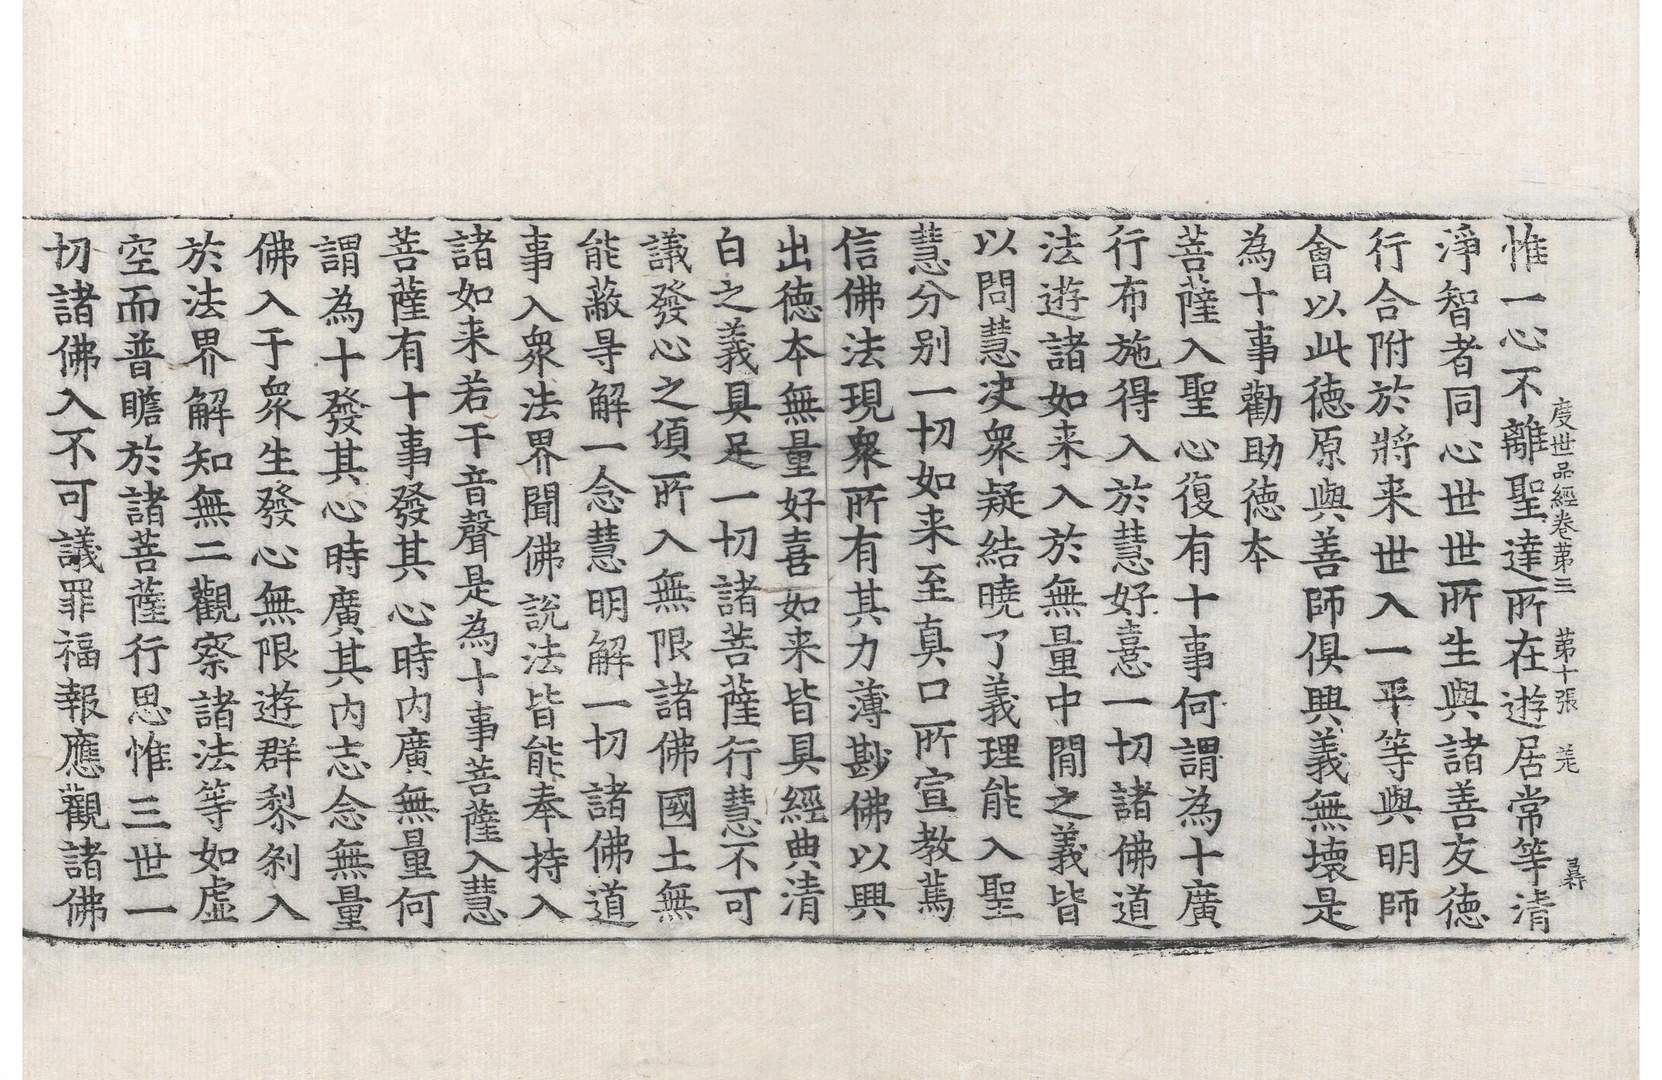 度世品經卷第三 第十張 羌
惟一心不離聖達所在遊居常等清
淨智者同心世世所生與諸善友德
行合附於將来世入一平等與明師
會以此德原與善師俱興義無壞是
為十事勸助德本
菩薩入聖心復有十事何謂為十廣
行布施得入於慧好憙一切諸佛道
法遊諸如来入於無量中間之義皆
以問慧决衆疑結曉了義理能入聖
慧分別一切如来至真口所宣教蔿
信佛法現衆所有其力薄尠佛以興
出德本無量好喜如来皆具經典清
白之義具足一切諸菩薩行慧不可
議發心之湏所入無限諸佛國土無
能蔽㝵解一念慧明解一切諸佛道
事入衆法界聞佛說法皆能奉持入
諸如来若干音聲是為十事菩薩入慧
菩薩有十事發其心時內廣無量何
謂為十發其心時廣其內志念無量
佛入于衆生發心無限遊群棃刹入
於法界解知無二觀察諸法等如虛
空而普瞻於諸菩薩行思惟三世一
切諸佛入不可議罪福報應觀諸佛